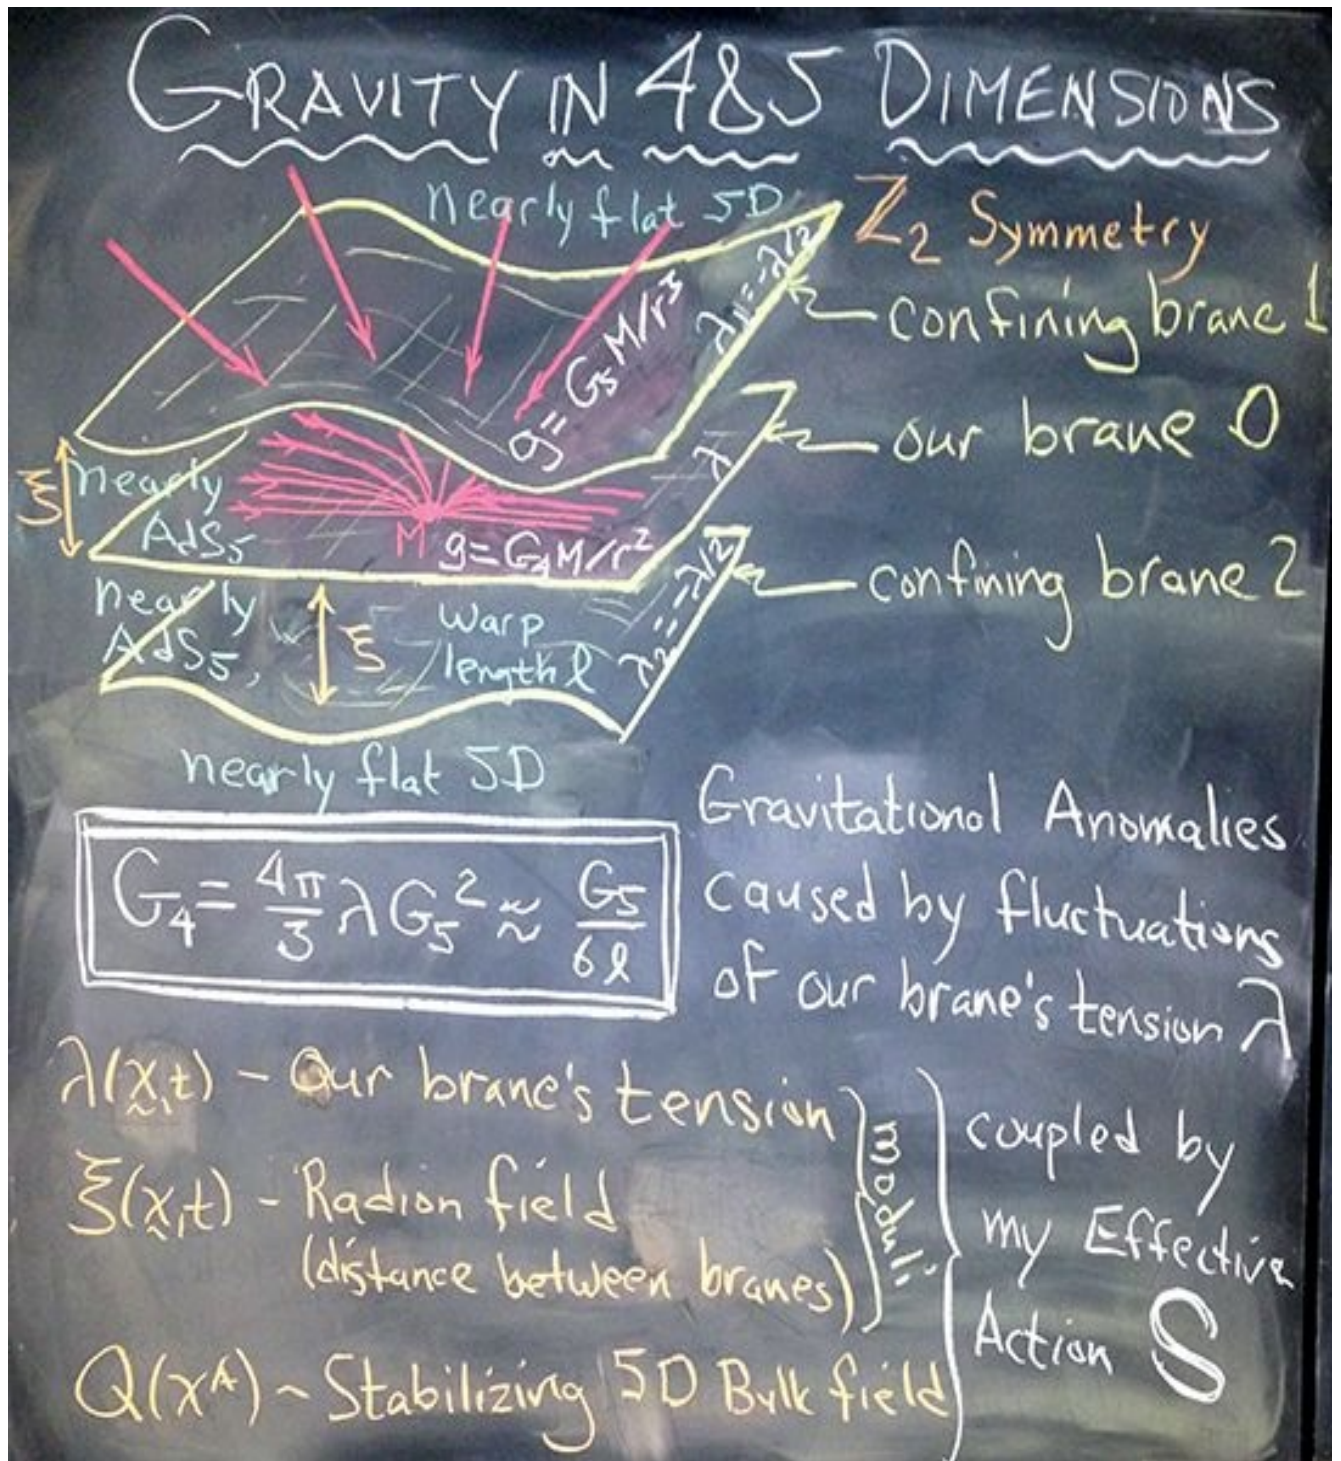 GRAVITY IN 4&5 DIMENSIONS
nearly flat 5D
Z₂ Symmetry
confining brane 1
λ₁=-λ/2
g=G₅M/r³
our brane 0
λ
ξ
nearly
AdS₅
M
g=G₄M/r²
confining brane 2
λ₂=-λ/2
nearly
AdS₅,
ξ
warp
length l
nearly flat 5D
G₄ = 4π/3 λ G₅² ≈ G₅/6l
Gravitational Anomalies
caused by fluctuations
of our brane's tension λ
λ(x,t) - Our brane's tension
ξ(x,t) - Radion field
(distance between branes)
moduli
Q(xᴬ) ~ Stabilizing 5D Bulk field
coupled by
my Effective
Action S